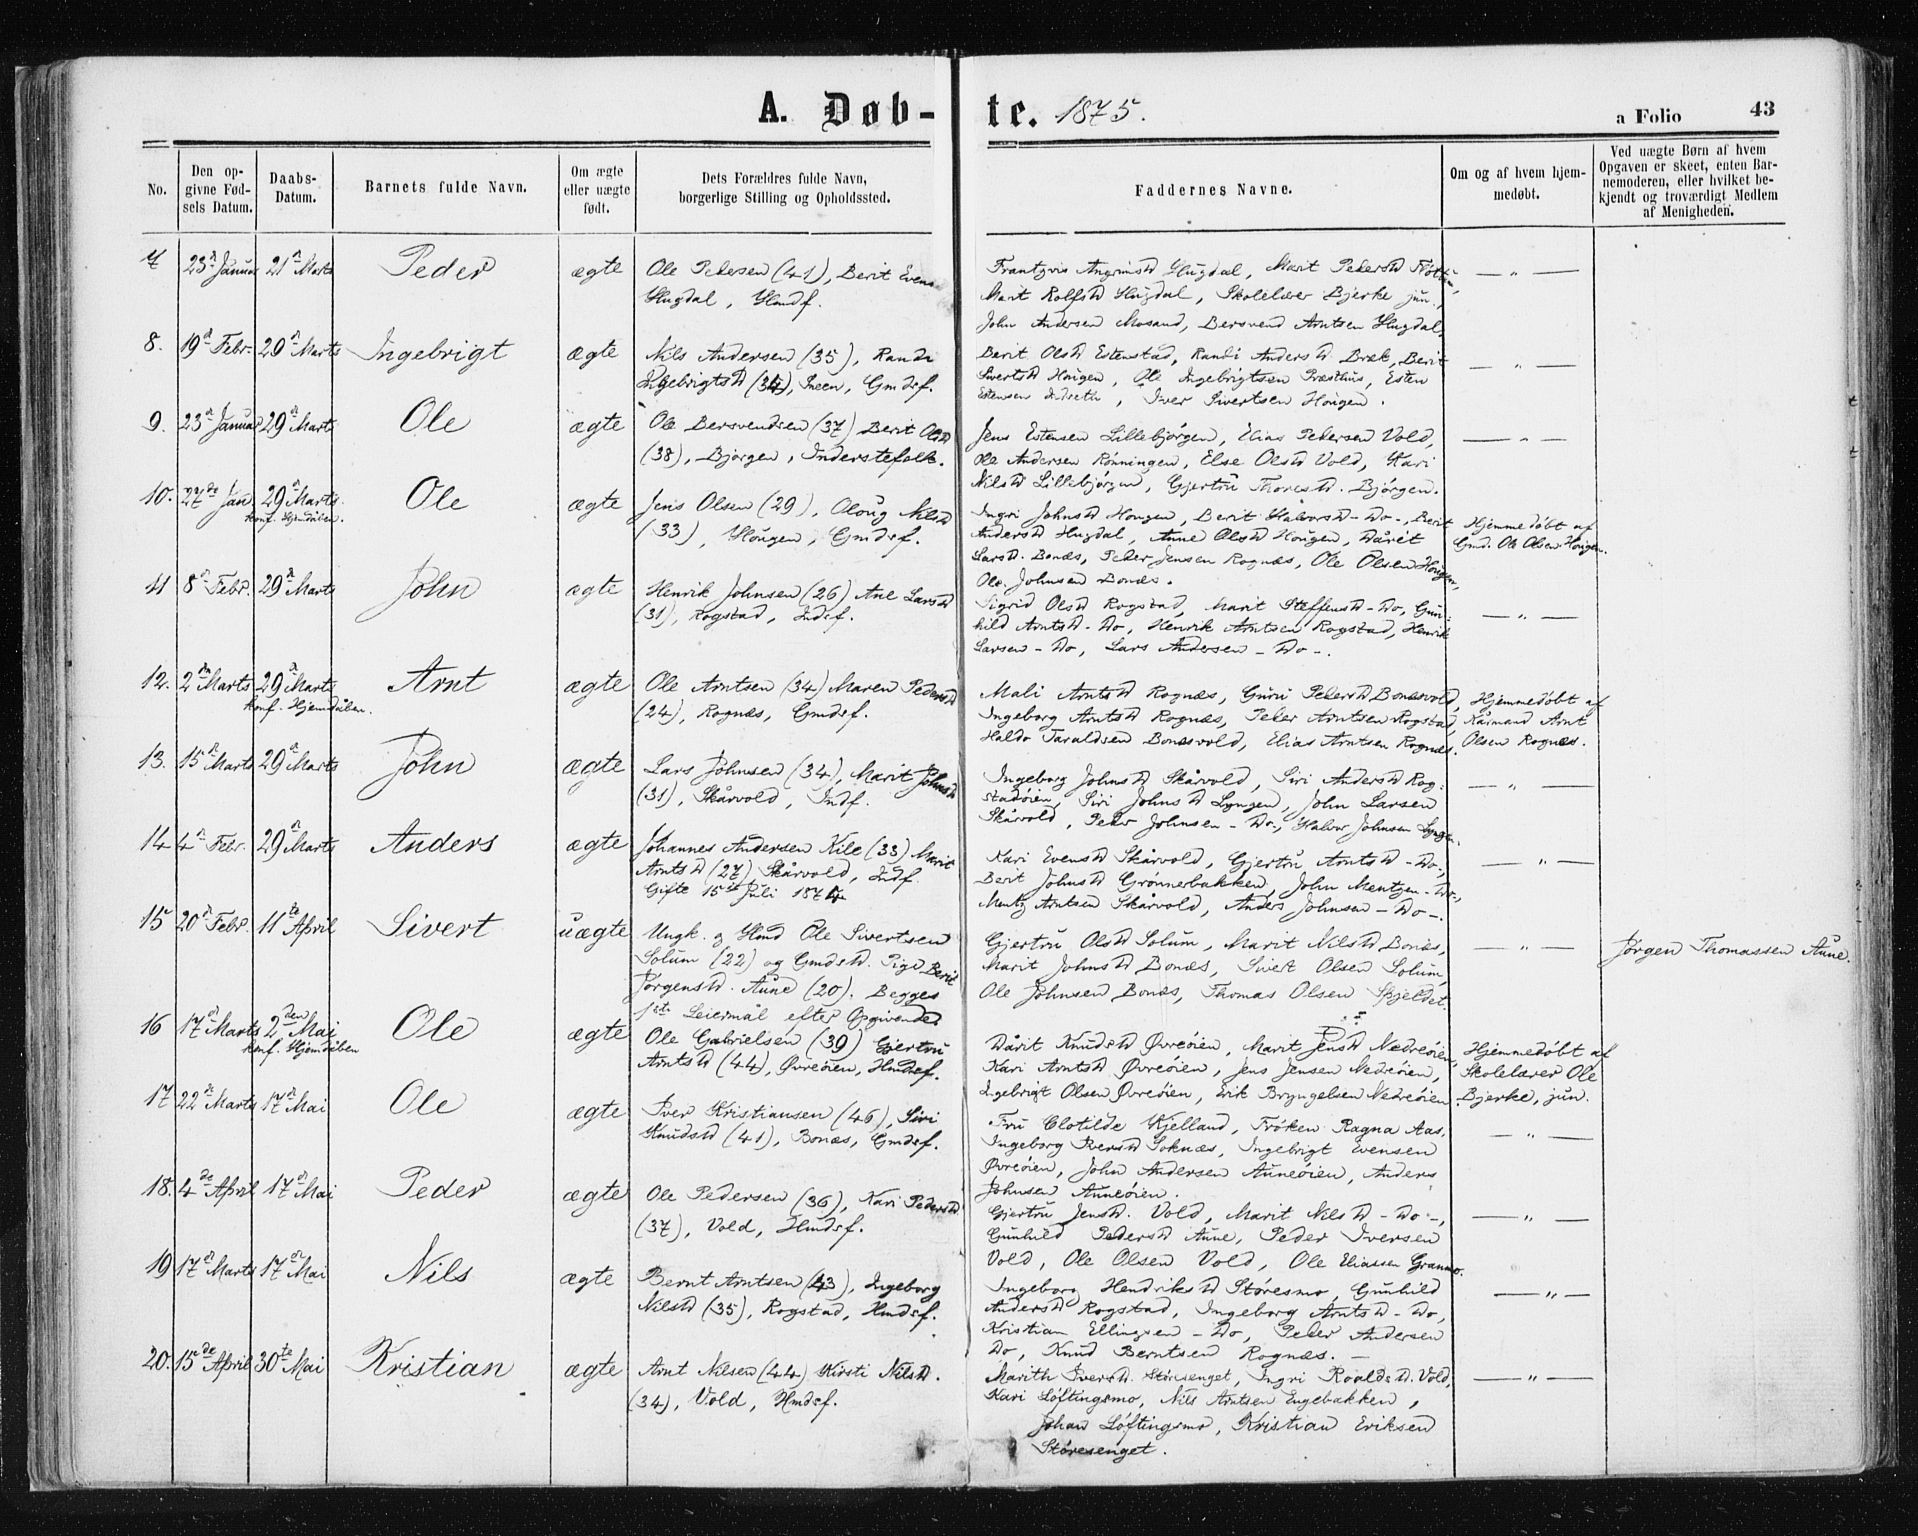 A. Døb-te. 1875.
a Folio 43
No.
Den op-
givne Fød-
sels Datum.
Daabs-
Datum.
Barnets fulde Navn.
Om ægte
eller uægte
født.
Dets Forældres fulde Navn,
borgerlige Stilling og Opholdssted.
Faddernes Navne.
Om og af hvem hjem-
medøbt.
Ved uægte Børn af hvem
Opgaven er skeet, enten Bar-
nemoderen, eller hvilket be-
kjendt og troværdigt Medlem
af Menigheden.
7 23d Januar 21d Marts Peder ægte
Ole Pedersen (41), Berit Evens
Hugdal, Hmdf.
Marit Peders D
Marit Rolfs D Hugdal, Skolelærer Bjerke jun.,
John Andersen Mosand, Bersvend Arntsen Hugdal,
— " —
8. 19d Febr. 29d Marts Ingebrigt ægte
Nils Andersen (35), Randi
Ingebrigts D (34), Gmdsf.
Berit Ols D Estenstad, Randi Anders D Bræk, Berit
Siverts D Hougen, Ole Ingebrigtsen Præsthus, Esten
Estensen Indseth, Iver Sivertsen Hougen.
— " —
9. 23d Januar 29d Marts Ole ægte
Ole Bersvendsen (37) Berit Ols D
(38), Bjørgen, Inderstefolk.
Jens Estensen Lillebjørgen, Elias Pedersen Vold,
Ole Andersen Rønningen, Else Ols D Vold, Kari
Nils D Lillebjørgen, Gjertru Thores D. Bjørgen.
— " —
10. 27de Jan 29d Marts Ole ægte
konf. Hjemdåben.
Jens Olsen (29), Oloug Nils D
(33), Hougen, Gmdsf.
Ingri Johns D Hougen, Berit Halvors D - Do -, Berit
Anders D Hugdal, Anne Ols D Hougen, Dårit
Lars D. Bonæs, Peder Jensen Rognæs, Ole Olsen Hougen,
Ole Johnsen Bonæs.
Hjemmedøbt af
Gmd. Ole Olsen Hougen.
11 8d Febr. 29d Marts John ægte
Henrik Johnsen (26) Ane Lars D
(31), Rogstad, Indsf.
Sigrid Ols D Rogstad, Marit Steffens D - Do, Gun-
hild Arnts D - Do, Henrik Arntsen Rogstad, Henrik
Larsen - Do, Lars Andersen - Do -.
— " —
12. 2den Marts 29d Marts Arnt ægte
konf. Hjemdåben.
Ole Arntsen (34) Maren Peders D
(24), Rognæs, Gmdsf.
Mali Arnts D Rognæs, Guru Peders D Bonæsvold,
Ingeborg Arnts D Rognæs, Peder Arntsen Rogstad,
Haldo Taraldsen Bonæsvold, Elias Arntsen Rognæs.
Hjemmedøbt af
Kårmand Arnt
Olsen Rognæs.
13. 15d Marts 29d Marts John ægte
Lars Johnsen (34), Marit Johns D
(31), Skårvold, Indf.
Ingeborg Johns D Skårvold, Siri Anders D Rog-
stadøien, Siri Johns D Lyngen, John Larsen
Skårvold, Peder Johnsen - Do -, Halvor Johnsen Lyngen.
— " —
14 4d Febr. 29d Marts Anders ægte
Johannes Andersen Kile (33) Marit
Arnts D (27) Skårvold, Indf.
Gifte 15de Juli 1874
Kari Evens D Skårvold, Gjertru Arnts D - Do -,
Berit Johns D Grønnerbakken, John Mentzen - Do -,
Mentz Arntsen Skårvold, Anders Johnsen - Do -.
— " —
15 20d Febr. 11te April Sivert uægte
Ungk. og Hmd Ole Sivertsen
Solum (22) og Gmds D. Pige Berit
Jørgens D. Aune (20). Begges
1ste Leiermål efter Opgivende
Gjertru Ols D Solum, Marit Nils D Bonæs,
Marit Johns D Bonæs, Sivert Olsen Solum,
Ole Johnsen Bonæs, Thomas Olsen Skjeldet.
— " —
Jørgen Thomassen Aune.
16 17d Marts 2den Mai Ole ægte
konf. Hjemdåben
Ole Gabrielsen (39) Gjertru
Arnts D (44), Øvreøien, Hmdsf.
Dårit Knuds D Øvreøien, Marit Jens D Nedreøien,
Kari Arnts D Øvreøien, Jens Jensen Nedreøien,
Ingebrigt Olsen Øvreøien, Erik Bryngelsen Nedreøien.
Hjemmedøbt af
Skolelærer Ole
Bjerke, jun.
17 22de Marts 17d Mai Ole ægte
Iver Kristiansen (46), Siri
Knuds D (41), Bonæs, Gmdsf.
Fru Clotilde Kjelland, Frøken Ragna Aas,
Ingeborg Ivers D Soknæs, Ingebrigt Evensen
Øvreøien, John Andersen Auneøien, Anders
Johnsen Auneøien.
— " —
18. 4de April 17d Mai Peder ægte
Ole Pedersen (36), Kari Peders D
(37), Vold, Hmdsf.
Gjertru Jens D. Vold, Marit Nils D - Do -,
Gunhild Peders D Aune, Peder Iversen
Vold, Ole Olsen Vold, Ole Eliassen Granmo.
— " —
19 17d Marts 17d Mai Nils ægte
Bernt Arntsen (43), Ingeborg
Nils D (35), Rogstad, Hmdsf.
Ingeborg Hendriks D Støresmo, Gunhild
Anders D Rogstad, Ingeborg Arnts D - Do,
Kristian Ellingsen - Do, Peder Andersen
Do, Knud Berntsen Rognæs. —
— " —
20. 15de April 30te Mai Kristian ægte
Arnt Nilsen (44) Kirsti Nils D.
(34), Vold, Hmdsf.
Marith Ivers D. Støresenget, Ingri Roalds D. Vold,
Kari Løftingsmo, Nils Arntsen Engebakken,
Johan Løftingsmo, Kristian Eriksen
Støresenget.
— " —